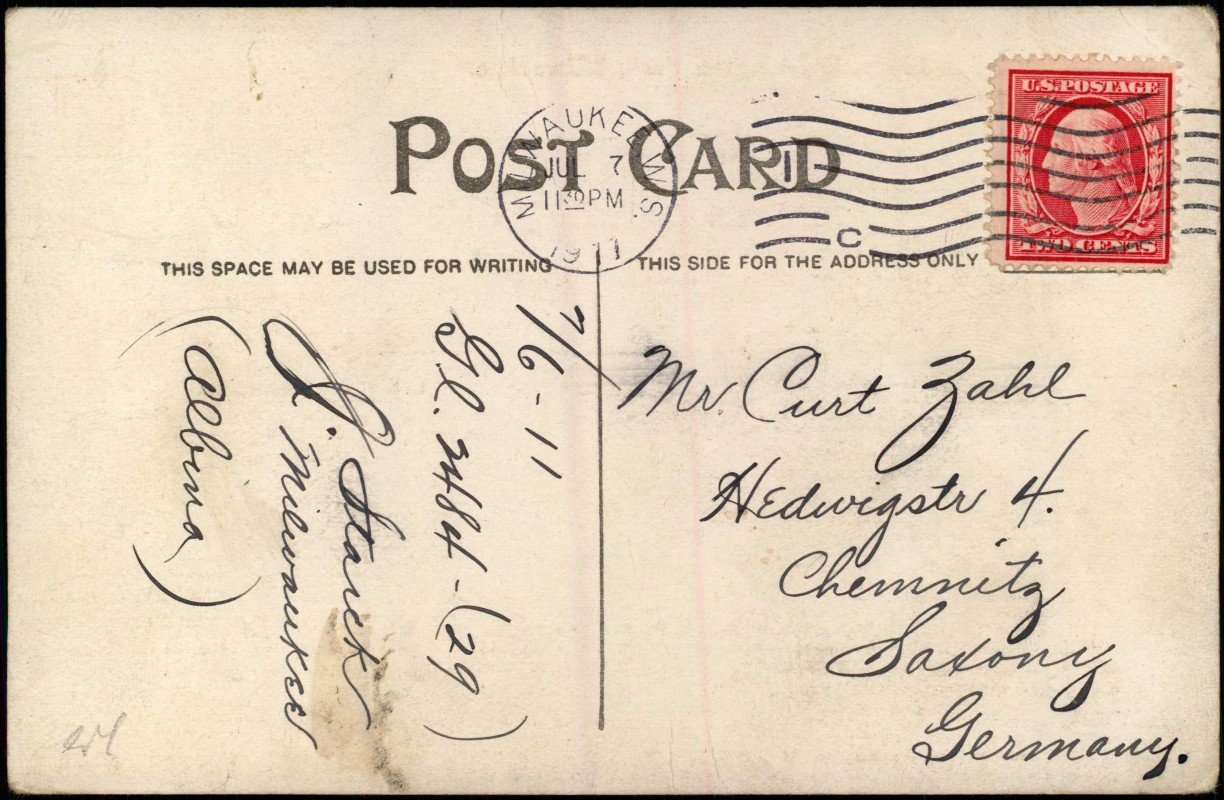 POST CARD
MILWAUKEE, WIS.
JUL 7
11 30 PM
1911
1
C
U.S. POSTAGE
TWO CENTS
THIS SPACE MAY BE USED FOR WRITING
THIS SIDE FOR THE ADDRESS ONLY
7/6-11
Gl. 2484-(29)
J. Starck
Milwaukee
(Albina)
Mr. Curt Zahl
Hedwigstr 4.
Chemnitz
Saxony
Germany.